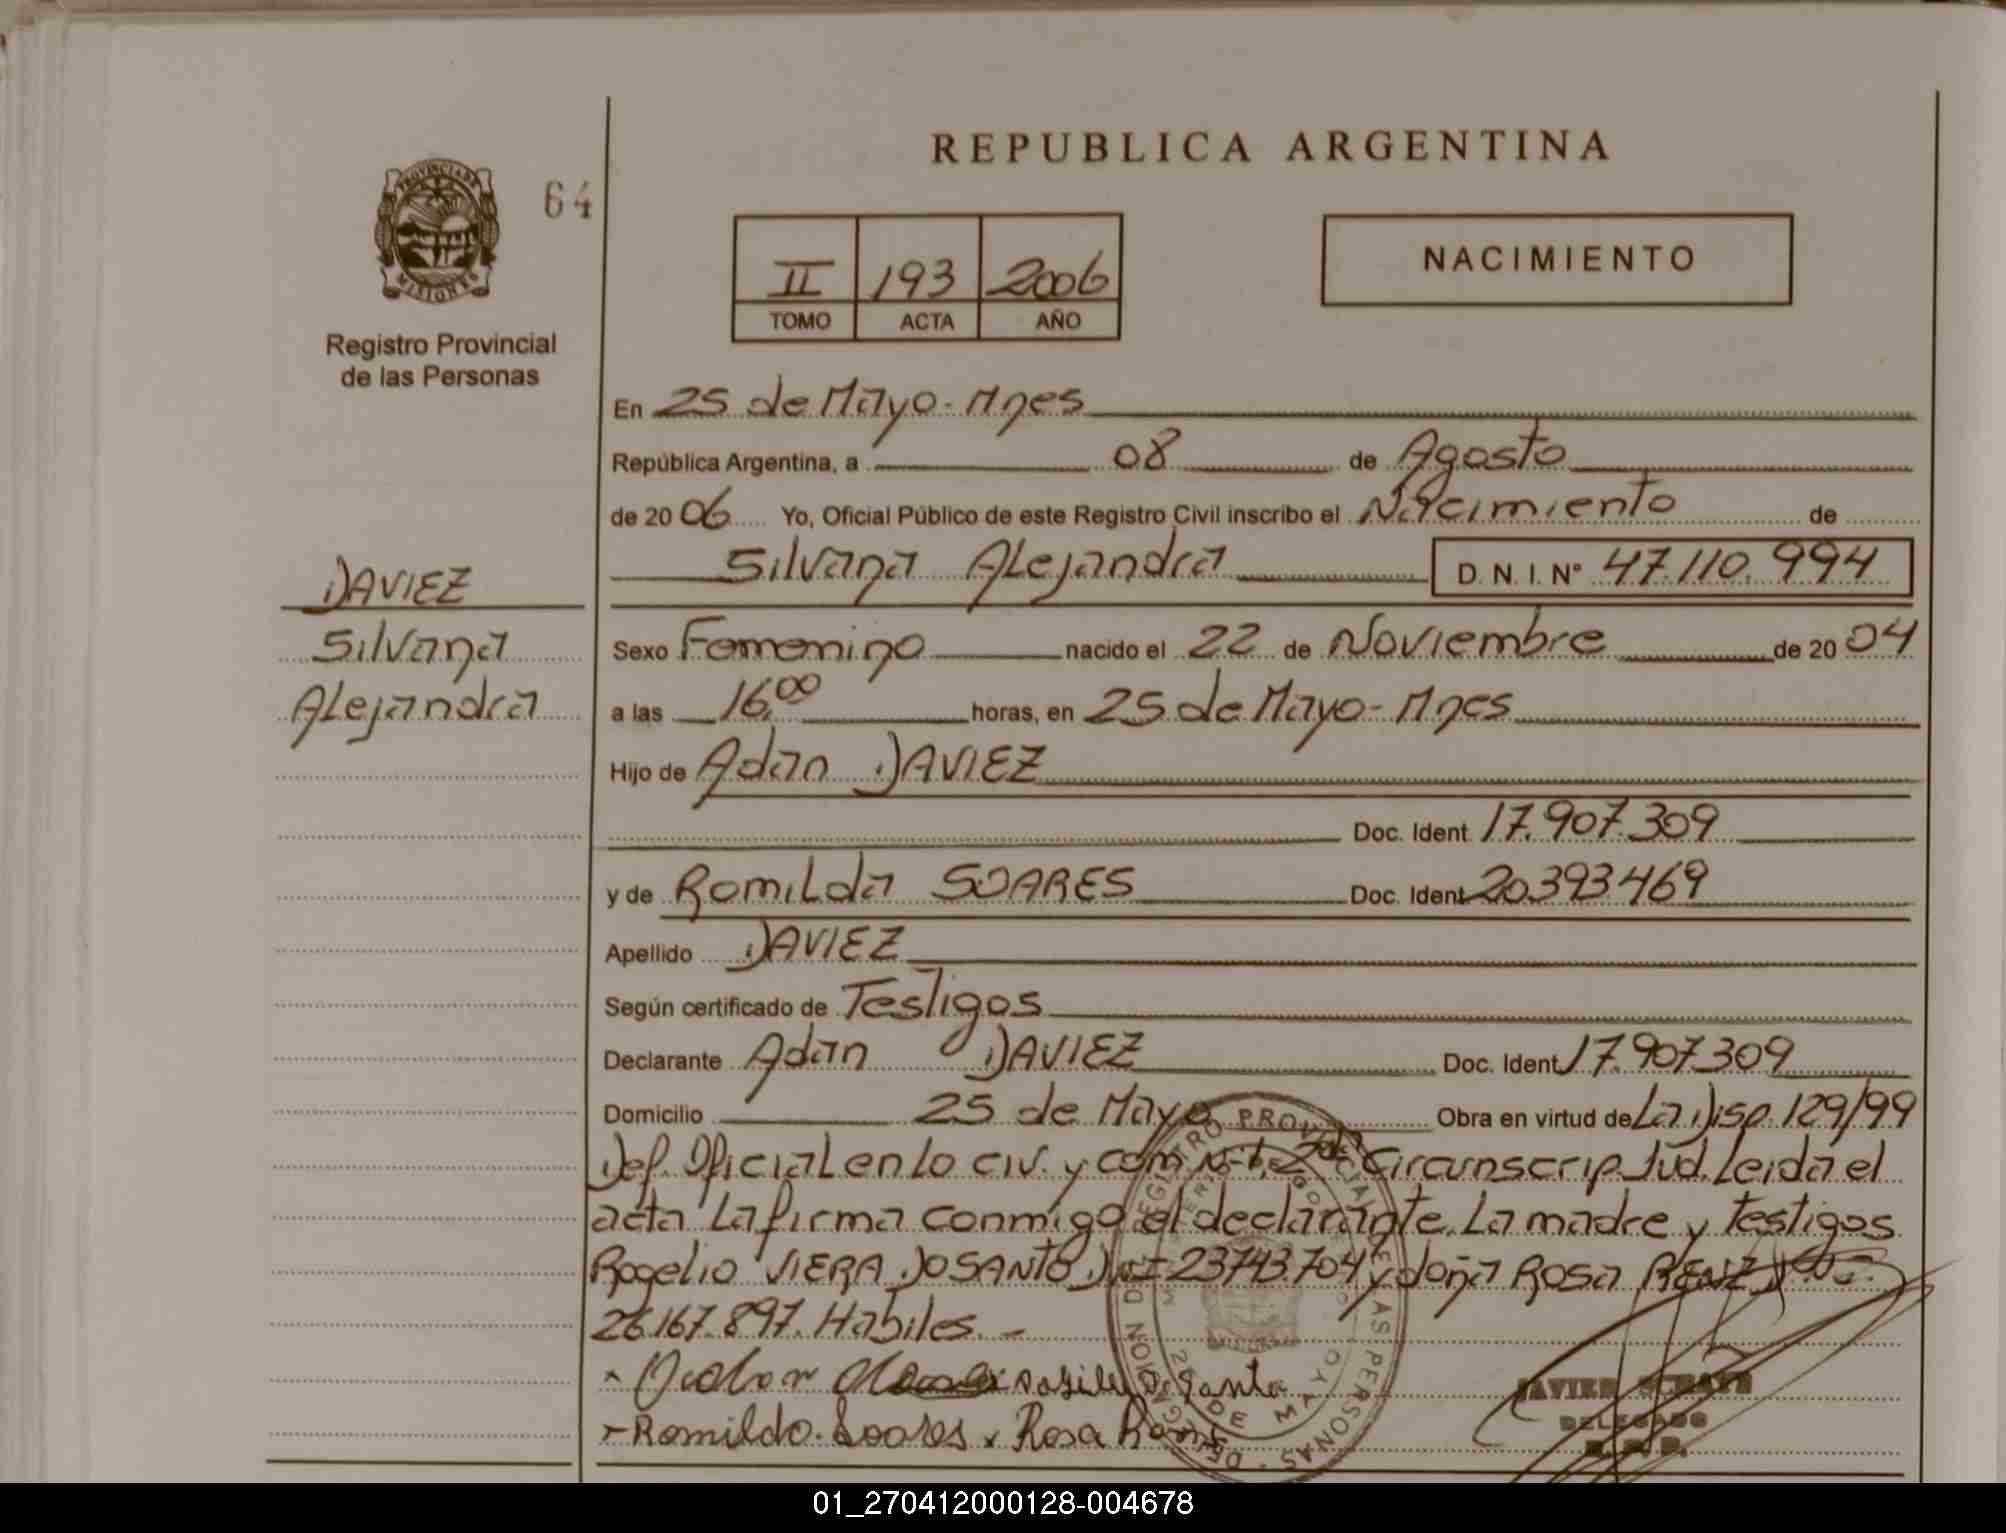 REPUBLICA ARGENTINA
PROVINCIA DE
MISIONES
64
Registro Provincial
de las Personas
II 193 2006
TOMO ACTA AÑO
NACIMIENTO
En 25 de Mayo - Mnes
República Argentina, a 08 de Agosto
de 2006 Yo, Oficial Público de este Registro Civil inscribo el Nacimiento de
Silvana Alejandra D. N. I. N° 47.110.994
DAVIEZ
Silvana
Alejandra
Sexo Femenino nacido el 22 de Noviembre de 2004
a las 16,00 horas, en 25 de Mayo - Mnes
Hijo de Adan DAVIEZ
Doc. Ident 17.907.309
y de Romilda SOARES Doc. Ident 20.393469
Apellido DAVIEZ
Según certificado de Testigos
Declarante Adan DAVIEZ Doc. Ident 17.907.309
Domicilio 25 de Mayo Obra en virtud de La Disp. 129/99
Def. Oficial en lo civ. y com. N-1, 2da Circunscrip. Jud. Leida el
acta La firma conmigo el declarante, La madre y Testigos
Rogelio VIERA DOSANTO, 23743.704 y doña ROSA RENZ
26.167.897. Habiles. -
Romilda Soares x Rosa
JAVIER
DELEGADO
DELEGACION DEL REGISTRO PROVINCIAL DE LAS PERSONAS
25 DE MAYO
01_270412000128-004678